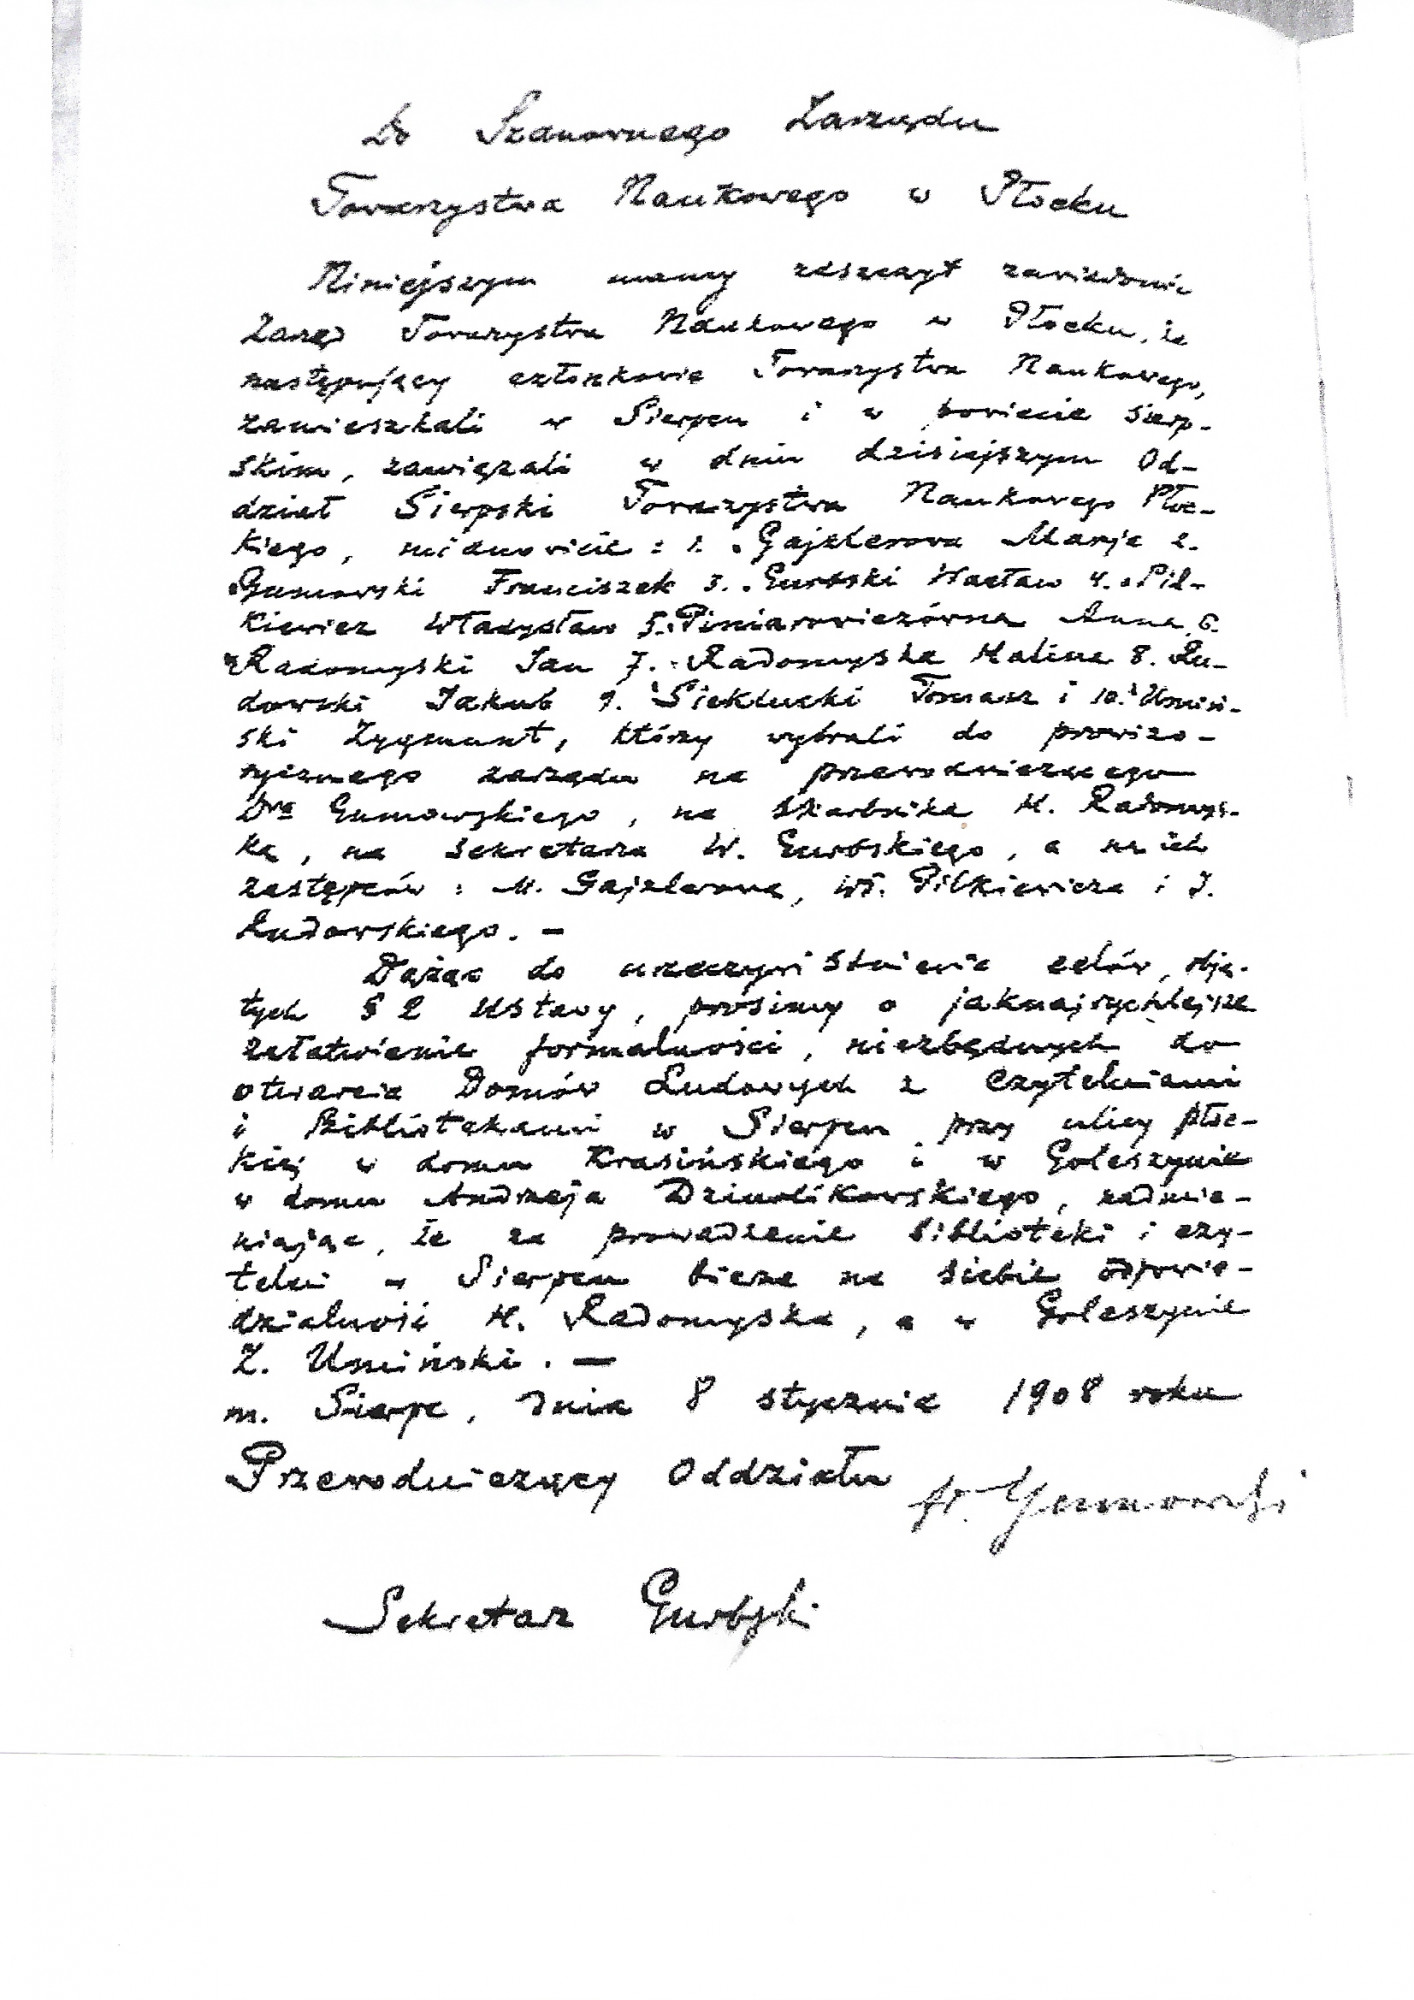 Do Szanownego Zarządu
Towarzystwa Naukowego w Płocku
Niniejszym mamy zaszczyt zawiadomić
Zarząd Towarzystwa Naukowego w Płocku, że
następujący członkowie Towarzystwa Naukowego,
zamieszkali w Sierpcu i w powiecie Sierp-
skim, zawiązali w dniu dzisiejszym Od-
dział Sierpski Towarzystwa Naukowego Płoc-
kiego, mianowicie: 1. Gajzlerowa Marja 2.
Gumowski Franciszek 3. Gurbski Wacław 4. Pil-
kiewicz Władysław 5. Piniarowiczówna Anna 6.
Radomyski Jan 7. Radomyska Halina 8. Ru-
dowski Jakub 9. Sieklucki Tomasz i 10. Umiń-
ski Zygmunt, którzy wybrali do prowizo-
rycznego zarządu na przewodniczącego
Dra Gumowskiego, na skarbnika H. Radomys-
ką, na sekretarza W. Gurbskiego, a na ich
zastępców: M. Gajzlerową, Wł. Pilkiewicza i J.
Rudowskiego. —
Dążąc do urzeczywistnienia celów, obję-
tych § 2 Ustawy, prosimy o jaknajrychlejsze
załatwienie formalności, niezbędnych do
otwarcia Domów Ludowych z Czytelniami
i Bibliotekami w Sierpcu przy ulicy Płoc-
kiej w domu Krasińskiego i w Goleszynie
w domu Andrzeja Dziwolikowskiego, nadmie-
niając, że za prowadzenie biblioteki i czy-
telni w Sierpcu bierze na siebie odpowie-
dzialność H. Radomyska, a w Goleszynie
Z. Umiński. —
m. Sierpc, dnia 8 stycznia 1908 roku
Przewodniczący Oddziału Fr. Gumowski
Sekretarz Gurbski